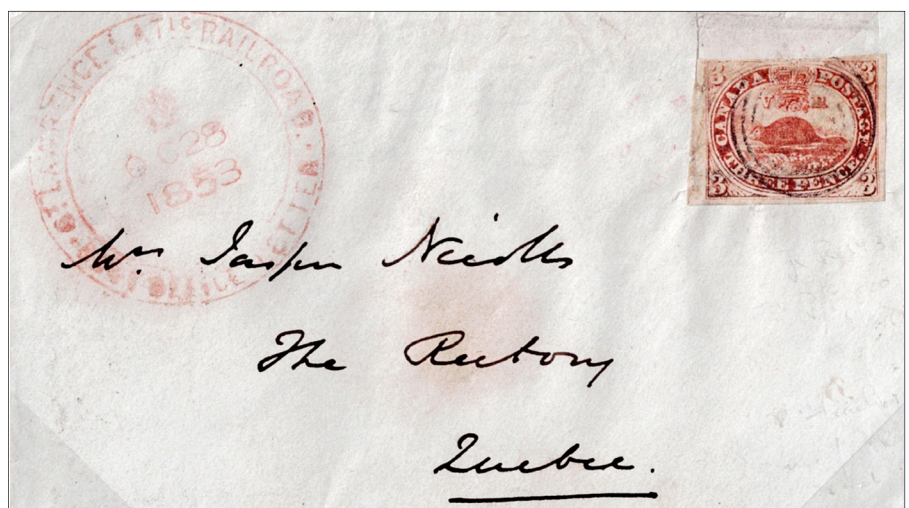 ST LAWRENCE & ATLC RAILROAD.
POST OFFICE LETTER
28
1853
3 CANADA POSTAGE 3
V R
3 THREE PENCE. 3
Mrs. Jasper Nicolls
The Rectory
Quebec.